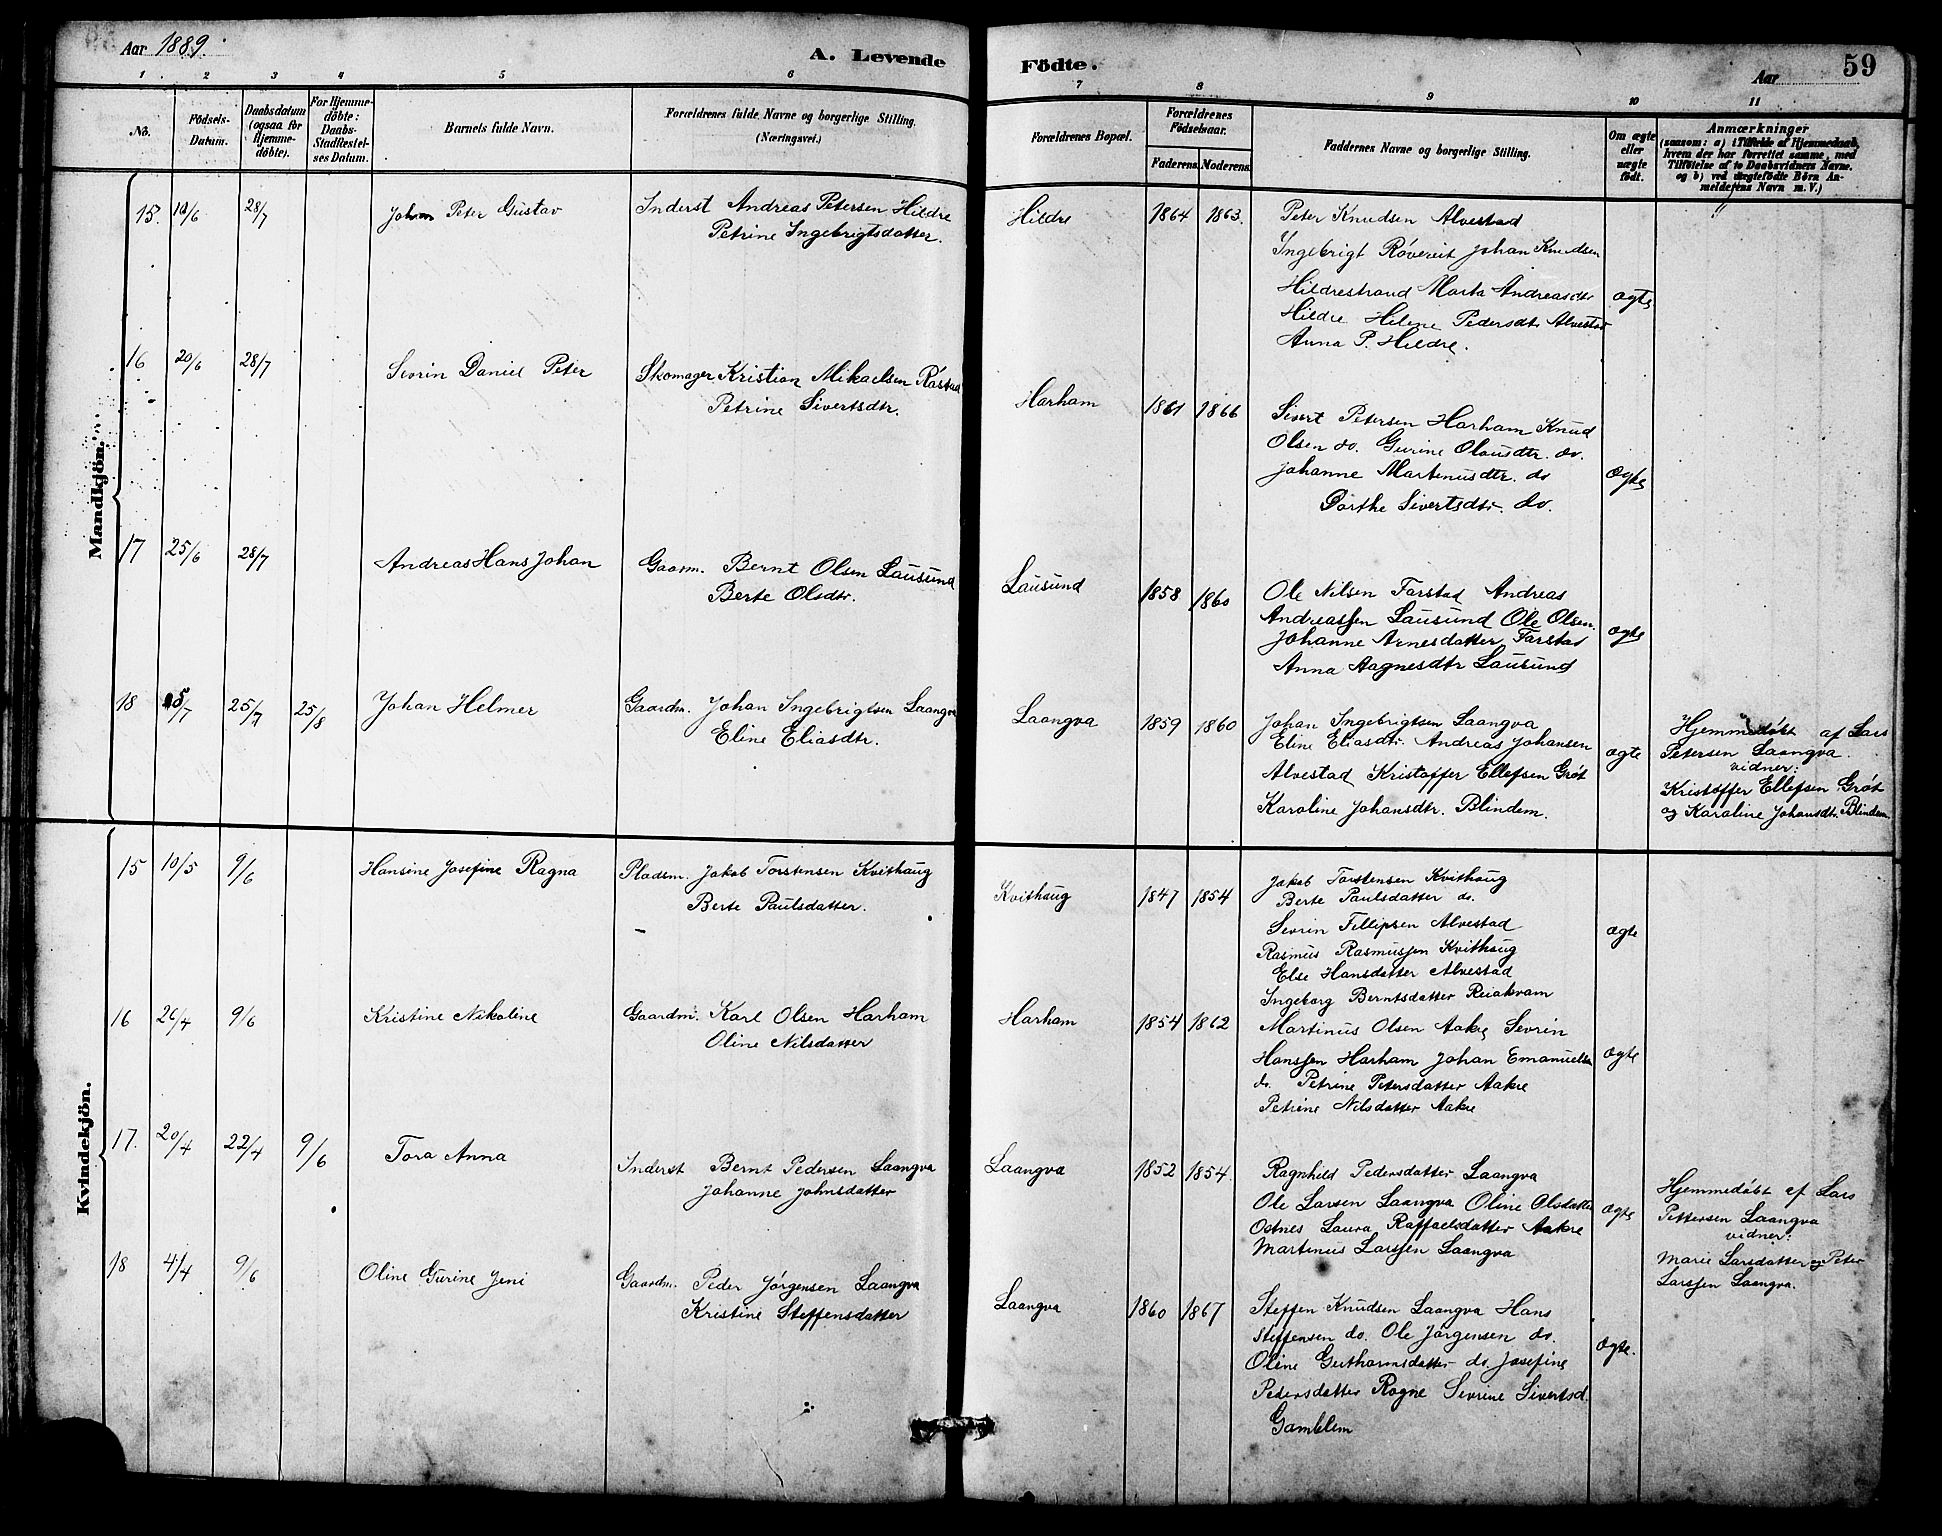 Aar 1889.
A. Levende Födte.
Aar
59
1. 2 3 4 5 6 7 8 9 10 11
No.
Födsels-
Datum.
Daabsdatum
(ogsaa for
Hjemme-
döbte).
For Hjemme-
döbte:
Daabs-
Stadfestel-
ses Datum.
Barnets fulde Navn.
Forældrenes fulde Navne og borgerlige Stilling.
(Næringsvei.)
Forældrenes Bopæl.
Forældrenes
Födselsaar.
Faderens. Moderens.
Faddernes Navne og borgerlige Stilling.
Om ægte
eller
uægte
födt.
Anmærkninger
(saasom: a) i Tilfælde af Hjemmedaab,
hvem der har forrettet samme, med
Tilföielse af to Daabsvidners Navne.
og b) ved uægtefödte Börn An-
melderens Navn m. V.)
Mandkjön.
15. 10/6 28/7 Johan Peter Gustav
Inderst Andreas Petersen Hildre
Petrine Ingebrigtsdatter.
Hildre 1864 1863.
Peter Knudsen Alvestad
Ingebrigt Røvereit Johan Knudsen
Hildrestrand Marta Andreasdtr
Hildre Helene Pedersdtr Alvestad
Anna P. Hildre.
ægte
16 20/6 28/7 Sevrin Daniel Peter
Skomager Kristian Mikaelsen Råstad
Petrine Sivertsdtr.
Harham 1861 1866
Sivert Petersen Harham Knud
Olsen do. Gurine Olausdtr. do.
Johanne Martinusdtr. do
Dorthe Sivertsdtr. do.
ægte
17 25/6 28/7 Andreas Hans Johan
Gaarm. Bernt Olsen Lausund
Berte Olsdtr.
Lausund 1858 1860
Ole Nilsen Farstad Andreas
Andreassen Lausund Ole Olsen.
Johanne Arnesdatter Farstad
Anna Aagnesdtr Lausund
ægte
18 5/7 25/7 25/8 Johan Helmer
Gaardm. Johan Ingebrigtsen Laangva
Eline Eliasdtr.
Laangva 1859 1860
Johan Ingebrigtsen Laangva
Eline Eliasdtr. Andreas Johansen
Alvestad Kristoffer Ellefsen Grøt
Karoline Johansdtr. Blindem.
ægte
Hjemmedøbt af Lars
Petersen Laangva.
vidner:
Kristoffer Ellefsen Grøt
og Karoline Johansdtr. Blindem
Kvindekjön.
15 10/5 9/6 Hansine Josefine Ragna
Pladsm. Jakob Torstensen Kvithaug
Berte Paulsdatter.
Kvithaug 1847 1854
Jakob Torstensen Kvithaug
Berte Paulsdatter do.
Sevrin Fillipsen Alvestad
Rasmus Rasmussen Kvithaug
Else Hansdatter Alvestad
Ingeborg Berntsdatter Reiakvam
ægte
16 26/4 9/6 Kristine Nikoline
Gaardm. Karl Olsen Harham
Oline Nilsdatter
Harham 1854 1862
Martinus Olsen Aakre Sevrin
Hanssen Harham Johan Emanuelsen
do. Petrine Petersdatter Aakre
Petrine Nilsdatter Aakre
ægte
17. 20/4 22/4 9/6 Tora Anna
Inderst Bernt Pedersen Laangva
Johanne Johnsdatter
Laangva 1852 1854.
Ragnhild Pedersdatter Laangva
Ole Larsen Laangva Oline Olsdatter
Ostnes Laura Raffaelsdatter Aakre
Martinus Larssen Laangva
ægte
Hjemmedøbt af Lars
Pettersen Laangva
vidner:
Marie Larsdatter og Peter
Larssen Laangva.
18 4/4 9/6 Oline Gurine Jeni
Gaardm. Peder Jörgensen Laangva
Kristine Steffensdatter
Laangva 1860 1867
Steffen Knudsen Laangva Hans
Steffensen do. Ole Jörgensen do.
Oline Guthormsdatter do. Josefine
Pedersdatter Rogne Sevrine Sivertsd.
Gamblem
ægte.